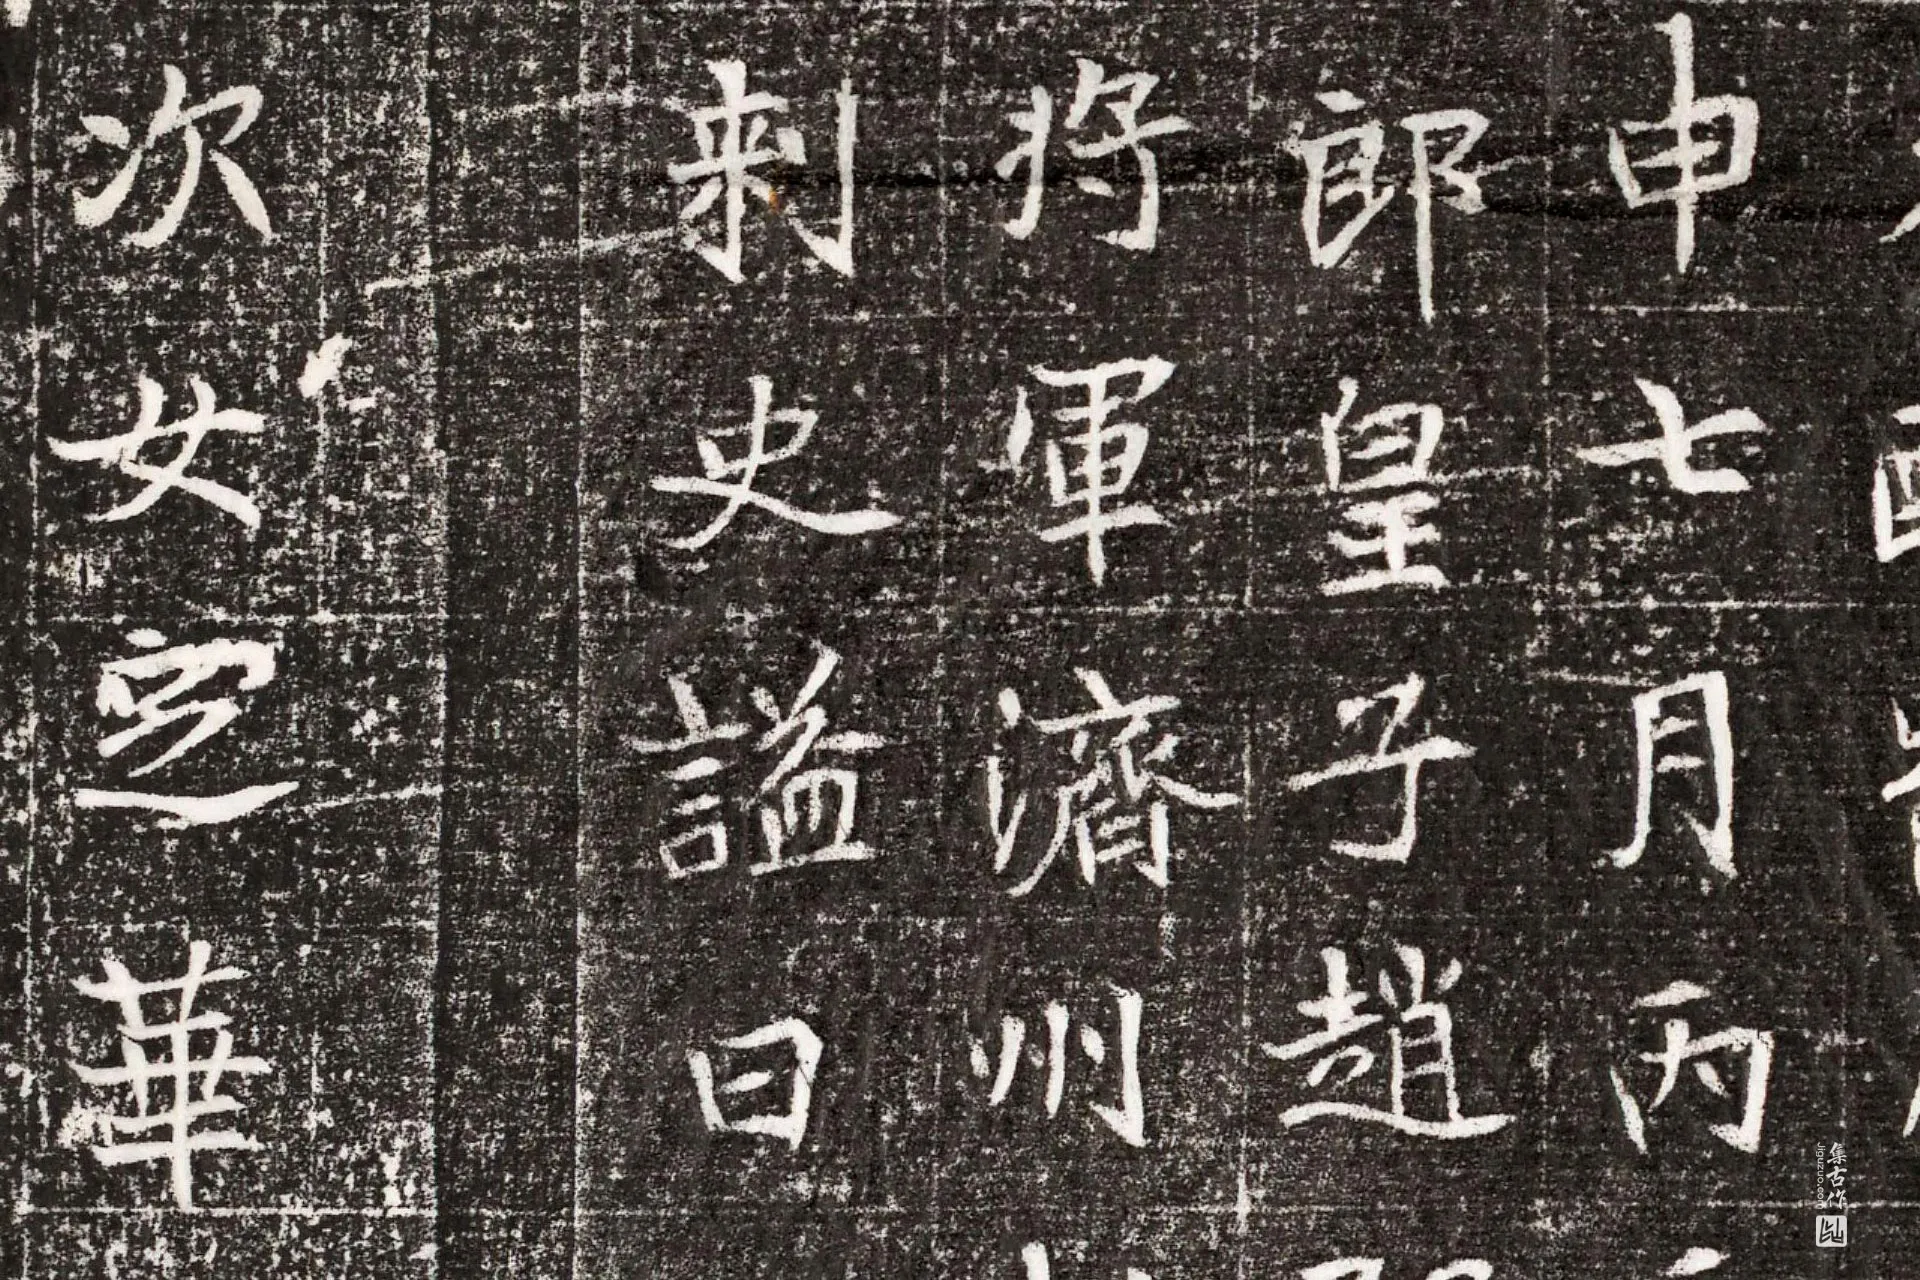 申七月丙
郎皇子趙
将軍濟州
刺史謚曰
次女㝎華
集古作
jiguzuo.com